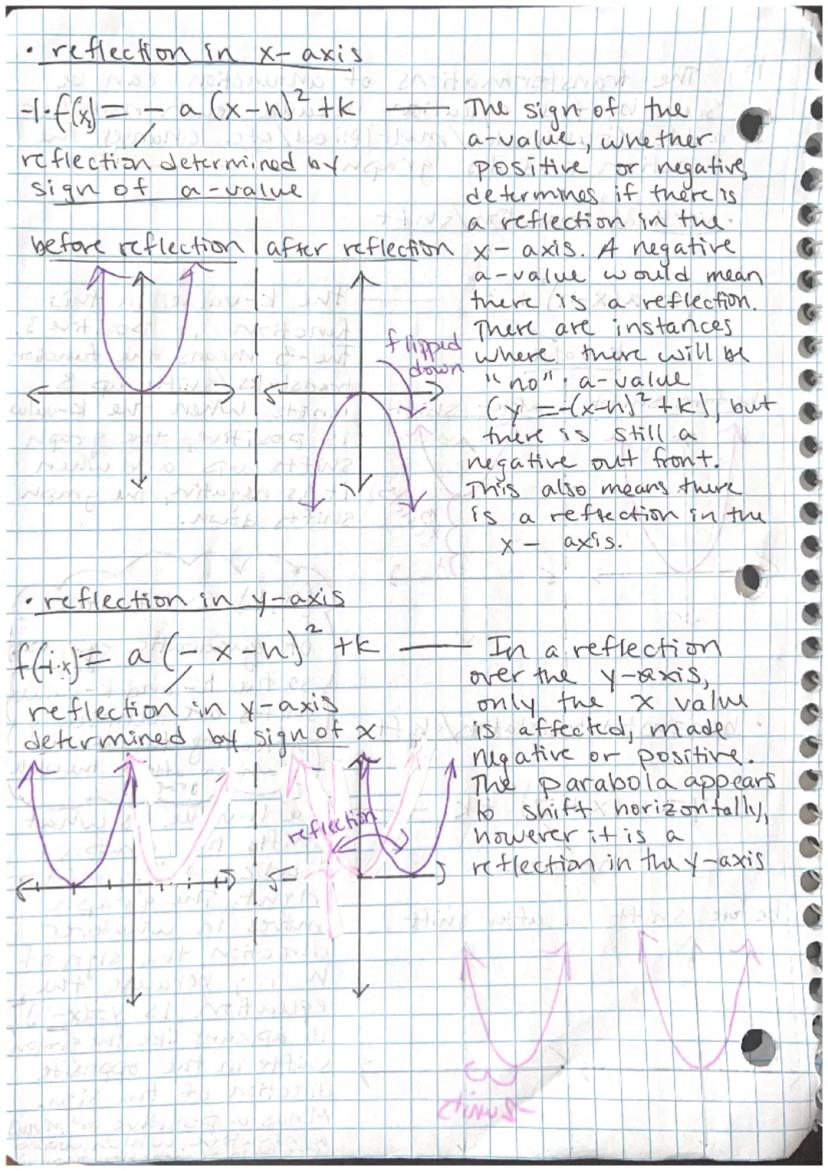 • reflection in x-axis
-1·f(x) = - a (x-h)² + k — The sign of the
a-value, whether
positive or negative,
determines if there is
a reflection in the
x- axis. A negative
a-value would mean
there is a reflection.
There are instances
where there will be
"no" a-value
(y =-(x-h)² +k), but
there is still a
negative out front.
This also means there
is a reflection in the
x - axis.
reflection determined by
sign of a-value
before reflection | after reflection
flipped
down
• reflection in y-axis
f(-1·x) = a (- x-h)² +k — In a reflection
over the y-axis,
only the x value
is affected, made
negative or positive.
The parabola appears
to shift horizontally,
however it is a
reflection in the y-axis
reflection in y-axis
determined by sign of x
reflection